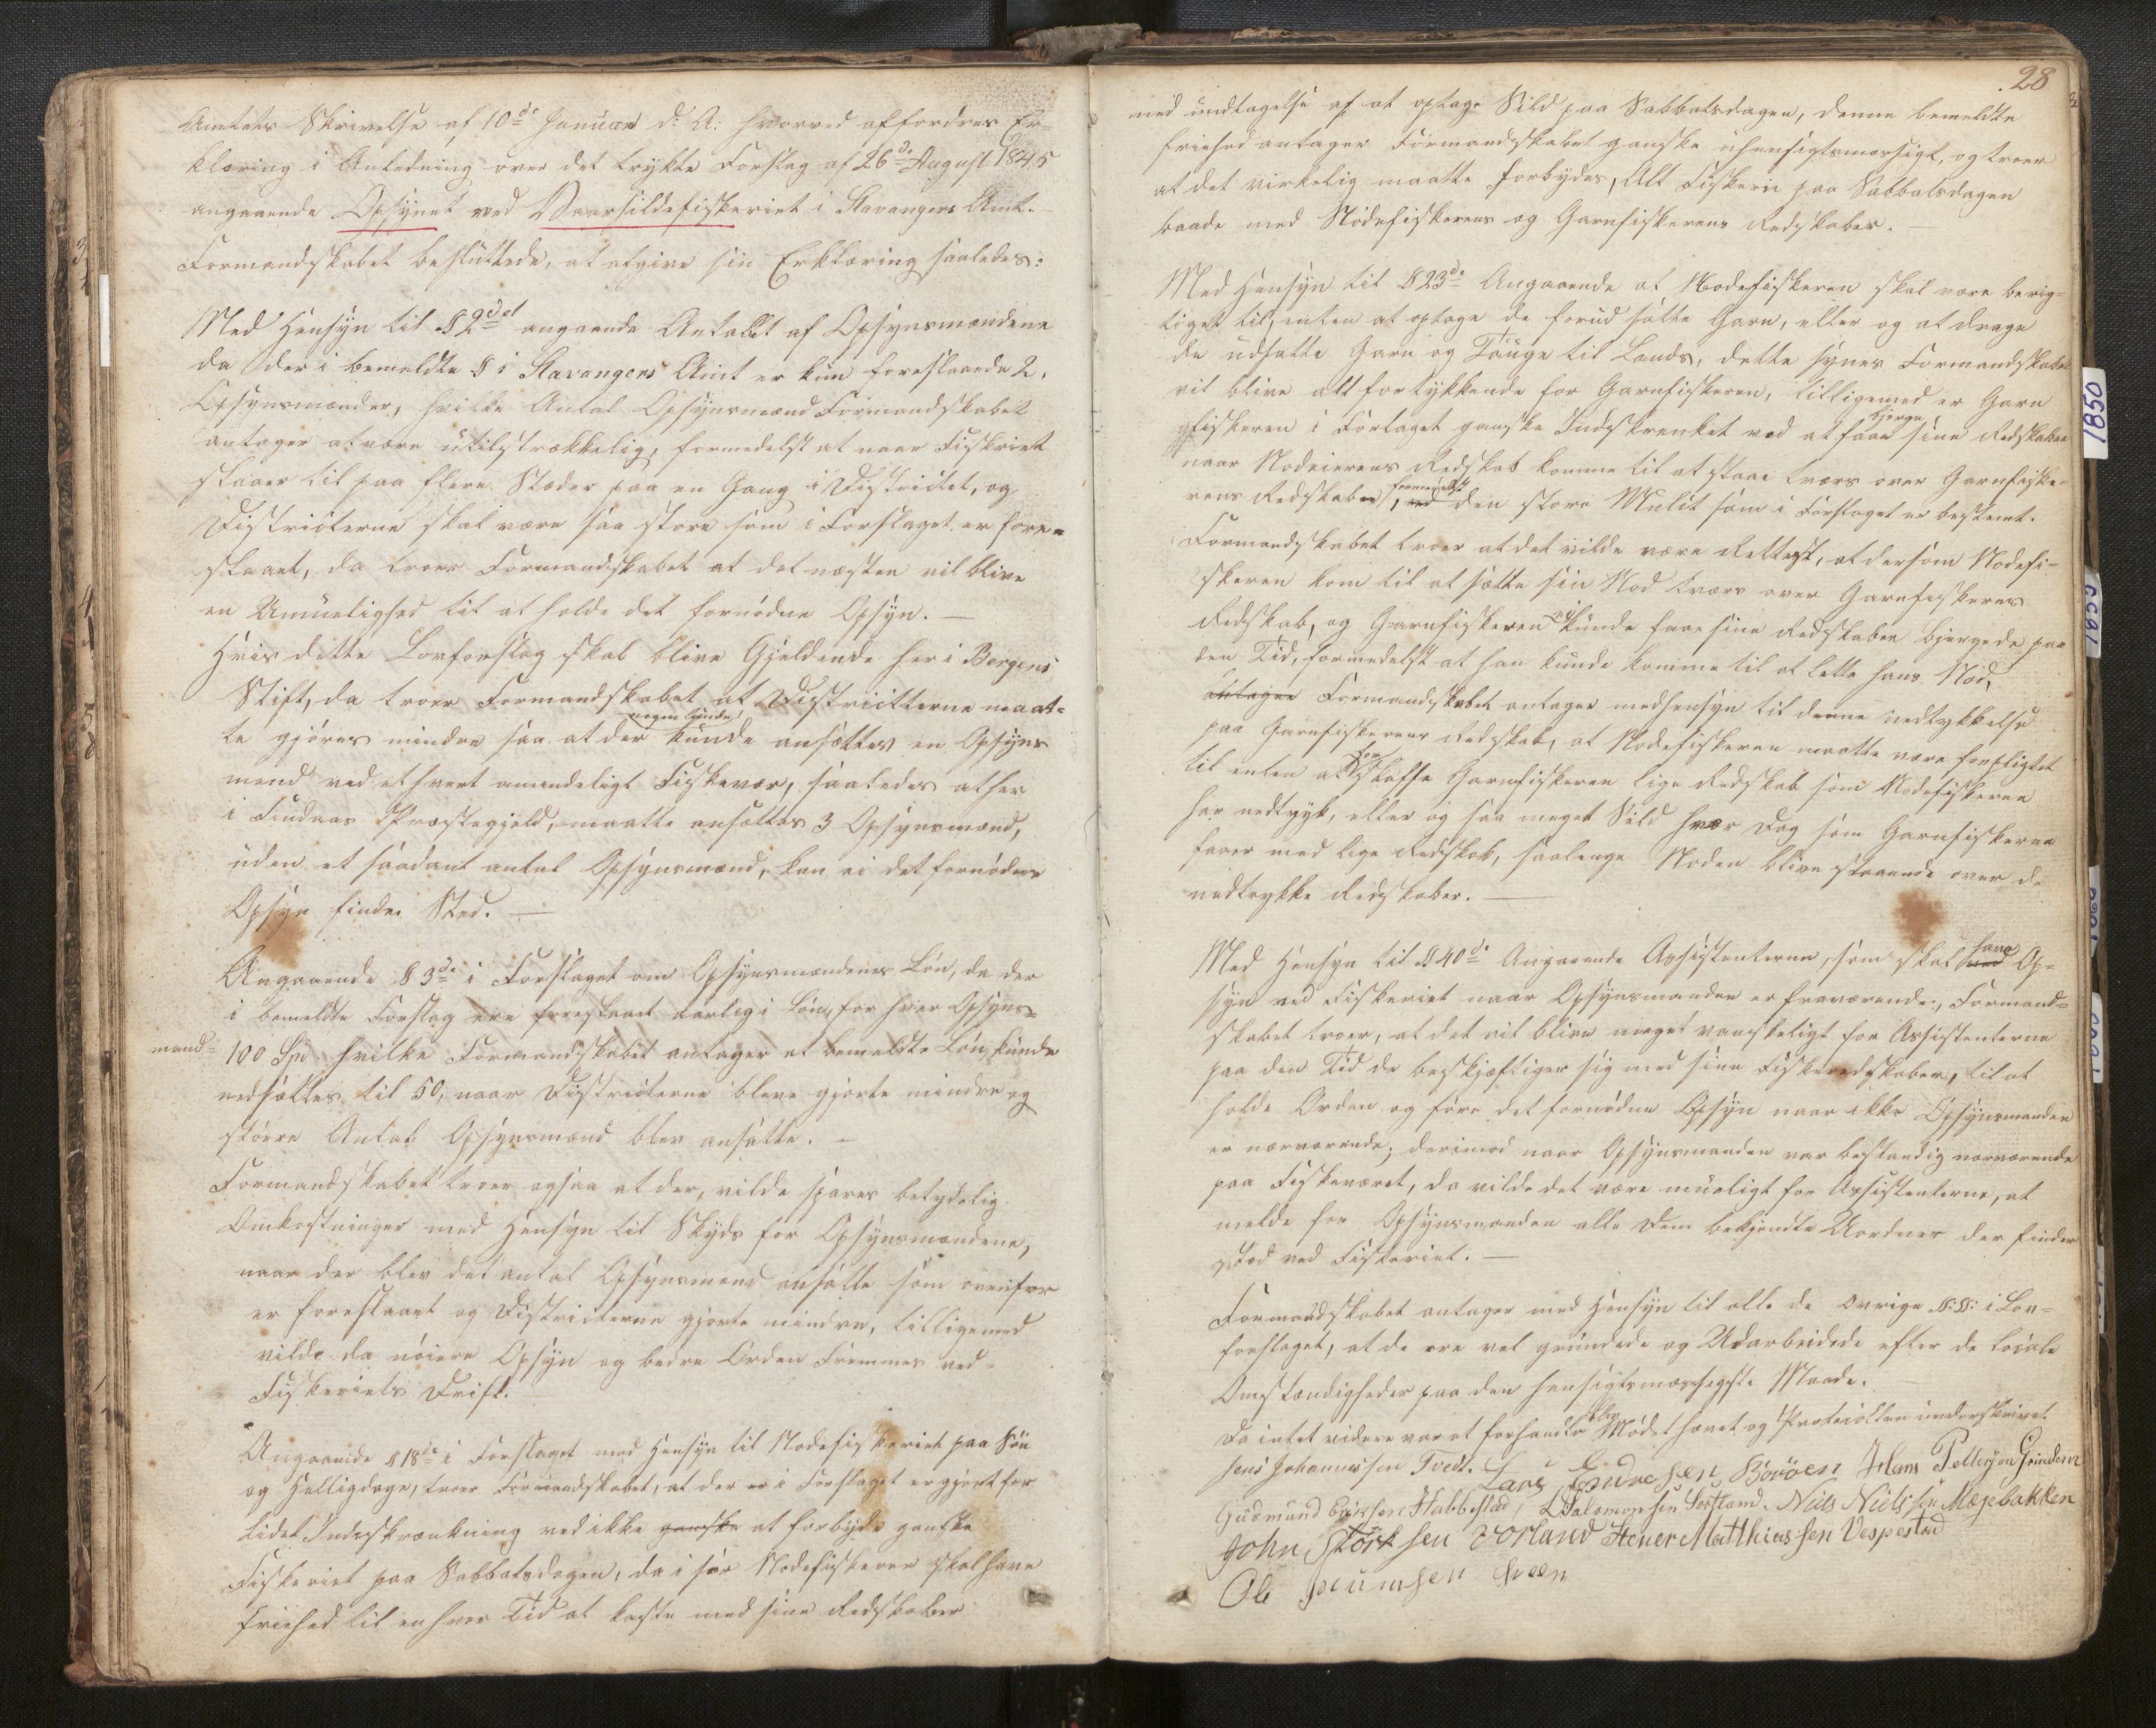 Amtets Skrivelse af 10de Januar d: A: hvorved affordres Er=
klæring i Anledning over det trykte Forslag af 26de August 1845
angaaende Opsynet ved Vaarsildefiskeriet i Stavangers Amt.
Formandskabet besluttede, at afgive sin Erklæring saaledes:
Med Hensyn til § 2det angaaende Antallet af Opsynsmændene
da der i bemeldte § i Stavangers Amt er kun foreslaaede 2.
Opsynsmænder, hvilke Antal Opsynsmænd Formandskabet
antager at være utilstrækkelig, formedelst at naar Fiskeriet
slaaer til paa flere Stæder paa en Gang i Districtet, og
Districterne skal være saa store som i Forslaget er fore=
slaaet, da troer Formandskabet at det næsten vil blive
en Umuelighed til at holde det fornødne Opsyn. —
Hvis dette Lovforslag skal blive Gjeldende her i Bergens
Stift, da troer Formandskabet at Districterne maat=
te gjøres mindre saa at der nogenlunde kunde ansættes en Opsyns
mand ved ethvert anmindeligt Fiskevær, saaledes at her
i Findaas Præstegjeld, maatte ansættes 3 Opsynsmænd,
uden et saadant antal Opsynsmænd, kan ei det fornødne
Opsyn finde Sted. —
Angaaende § 3de i Forslaget om Opsynsmændenes Løn, da der
i bemeldte Forslag ere foreslaaet aarlig i Løn, for hver Opsyns=
mand= 100 Spd hvilke Formandskabet antager at bemeldte Løn kunde
nedsættes til 50, naar Districterne bleve gjorte mindre og
større Antal Opsynsmænd blev ansatte. —
Formandskabet troer ogsaa at der, vilde spares betydelig
Omkostninger med Hensyn til Skyds for Opsynsmændene,
naar der blev det antal Opsynsmænd ansatte som ovenfor
er foreslaaet og Districterne gjorte mindre, tilligemed
vilde da nøiere Opsyn og bedre Orden Fremmes ved
Fiskeriets Drift.
Angaaende § 18de i Forslaget med Hensyn til Nodefiskeriet paa Søn
og Helligdage, troer Formandskabet, at der er i Forslaget er gjort for
lidet Indskrænkning ved ikke ganske at forbyde ganske
Fiskeriet paa Sabbatsdagen, da i sær Nodefiskeren skal have
friehed til enhver Tid at kaste med sine Redskaber
28
med undtagelse af at optage Sild paa Sabbatsdagen, denne bemeldte
friehed antager Formandskabet ganske uhensigtsmæssigt, og troer
at det virkelig maatte forbydes, Alt Fiskerie paa Sabbatsdagen
baade med Nodefiskerens og Garnfiskerens Redskaber. —
Med Hensyn til § 23de Angaaende at Nodefiskeren skal være berig=
tiget til, enten at optage de forud satte Garn, eller og at drage
de udsatte Garn og Tauge til Lands, dette synes Formandskabet
vil blive alt for tykkende for Garnfiskeren, tilligemed er Garn
fiskeren i Forlaget ganske Indskrenket ved at faae bjerge sine Redskaber
naar Nodeierens Redskab komme til at staae tværs over Garnfiske=
rens Redskaber, ved formedelst den store Mulct som i Forslaget er bestemt.
Formandskabet troer at det vilde være Rettest, at dersom Nodefi=
skeren kom til at sætte sin Nod tværs over Garnfiskerens
Redskab, og Garnfiskeren ei kunde faae sine Redskaber bjergede paa
den Tid, formedelst at han kunde komme til at lette hans Nod,
antager Formandskabet antager medhensyn til denne nedtykkelse
paa Garnfiskerens Redskab, at Nodefiskeren maatte være forpligtet
til enten at forskaffe Garnfiskeren lige Redskab som Nodefiskeren
har nedtrykt, eller og saa meget Sild hver Dag som Garnfiskerne
faaer med lige Redskab, saalenge Noden blive staaende over de
nedtrykke Redskaber. —
Med Hensyn til § 40de Angaaende Assistenterne, som skal have Op=
syn ved Fiskeriet naar Opsynsmanden er fraværende, Formand=
skabet troer, at det vil blive meget vanskeligt for Assistenterne
paa den Tid de beskjæftiger sig med sine Fiskeredskaber, til at
holde Orden og føre det fornødne Opsyn naar ikke Opsynsmanden
er nærværende; derimod naar Opsynsmanden var bestandig nærværende
paa Fiskeværet, da vilde det være mueligt for Assistenterne, at
melde for Opsynsmanden alle dem bekjendte Uordner der finder
sted ved Fiskeriet. —
Formandskabet antager med Hensyn til alle de øvrige §:§: i Lov=
forslaget, at de ere vel grundede og Udarbeidede efter de locale
Omstændigheder paa den hensigtsmæssigste Maade. —
Da intet videre var at forhandle blev Mødet hævet og Protocollen underskrivet
Jens Johannessen Tvedt. Lars Endresen Børøen Hans Pettersen Grindem
Gudmund Eriksen Habbestad, L Salomonsen Sortland. Niels Nielsen Mæjebakken
John Størksen Vorland Stener Matthiassen Vespestad
Ole
1850